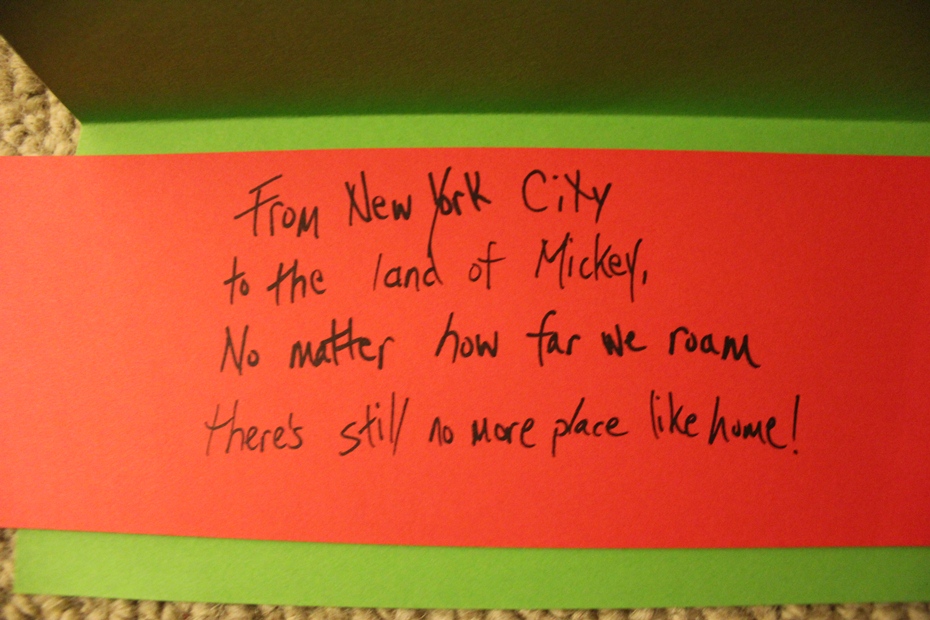 From New York City
to the land of Mickey,
No matter how far we roam
there's still no more place like home!